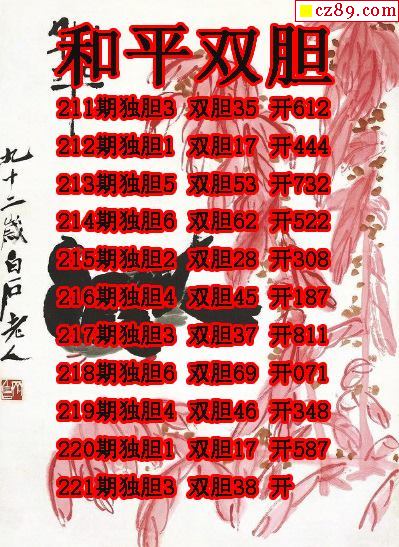 cz89.com
和平双胆
211期独胆3 双胆35 开612
212期独胆1 双胆17 开444
213期独胆5 双胆53 开732
214期独胆6 双胆62 开522
215期独胆2 双胆28 开308
216期独胆4 双胆45 开187
217期独胆3 双胆37 开811
218期独胆6 双胆69 开071
219期独胆4 双胆46 开348
220期独胆1 双胆17 开587
221期独胆3 双胆38 开
九十二岁白石老人